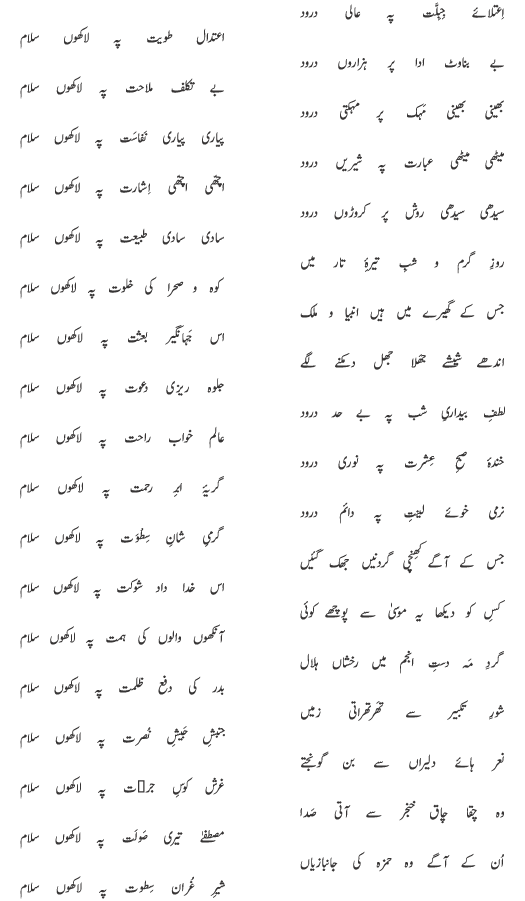 اِعتلائے جِبِلَّت پہ عالی درود
اعتدال طویت پہ لاکھوں سلام
بے بناوٹ ادا پر ہزاروں درود
بے تکلف ملاحت پہ لاکھوں سلام
بھینی بھینی مہک پر مہکتی درود
پیاری پیاری نَفاسَت پہ لاکھوں سلام
میٹھی میٹھی عبارت پہ شیریں درود
اچھی اچھی اِشارت پہ لاکھوں سلام
سیدھی سیدھی روش پر کروڑوں درود
سادی سادی طبیعت پہ لاکھوں سلام
روزِ گرم و شبِ تیرۂ تار میں
کوہ و صحرا کی خلوت پہ لاکھوں سلام
جس کے گھیرے میں ہیں انبیا و ملک
اس جَہانگیر بعثت پہ لاکھوں سلام
اندھے شیشے جھلا جھل دمکنے لگے
جلوہ ریزی دعوت پہ لاکھوں سلام
لطفِ بیداریِ شب پہ بے حد درود
عالم خواب راحت پہ لاکھوں سلام
خندۂ صبحِ عِشرت پہ نوری درود
گریۂ ابرِ رحمت پہ لاکھوں سلام
نرمی خوئے لینتِ پہ دائم درود
گرمیِ شانِ سِطْوَت پہ لاکھوں سلام
جس کے آگے کھِنچی گردنیں جھک گئیں
اس خدا داد شوکت پہ لاکھوں سلام
کسِ کو دیکھا یہ موسیٰ سے پوچھے کوئی
آنکھوں والوں کی ہمت پہ لاکھوں سلام
گردِ مَہ دستِ انجم میں رخشاں ہلال
بدر کی دفعِ ظلمت پہ لاکھوں سلام
شورِ تکبیر سے تھَرتھَراتی زمیں
جنبشِ جَیشِ نُصرت پہ لاکھوں سلام
نعر ہائے دلیراں سے بن گونجتے
غرشِ کوسِ جر▯ت پہ لاکھوں سلام
وہ چقا چاق خنجر سے آتی صَدا
مصطفیٰ تیری صَولَت پہ لاکھوں سلام
اُن کے آگے وہ حمزہ کی جانبازیاں
شیرِ غُران سِطوت پہ لاکھوں سلام